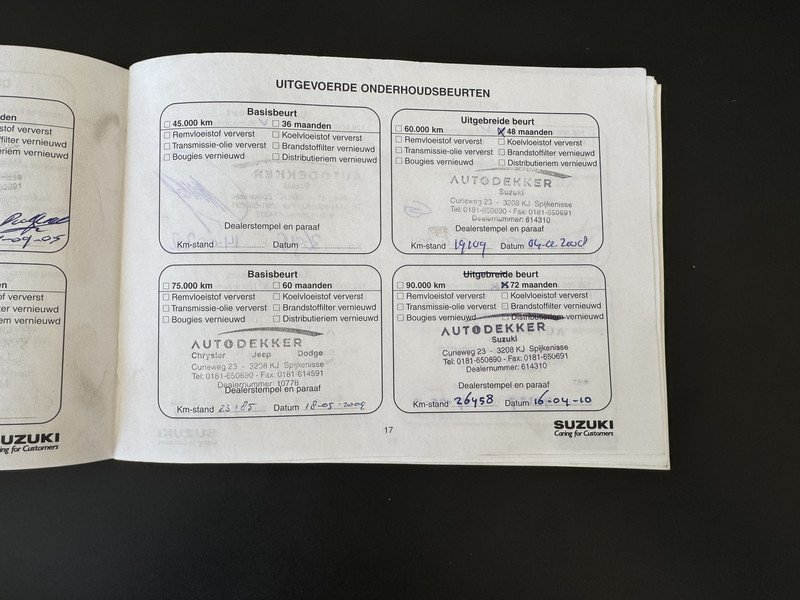 UITGEVOERDE ONDERHOUDSBEURTEN
Basisbeurt
45.000 km 36 maanden
Remvloeistof ververst Koelvloeistof ververst
Transmissie-olie ververst Brandstoffilter vernieuwd
Bougies vernieuwd Distributieriem vernieuwd
Dealerstempel en paraaf
Km-stand Datum
Uitgebreide beurt
60.000 km 48 maanden
Remvloeistof ververst Koelvloeistof ververst
Transmissie-olie ververst Brandstoffilter vernieuwd
Bougies vernieuwd Distributieriem vernieuwd
AUTODEKKER
Suzuki
Curieweg 23 - 3208 KJ Spijkenisse
Tel: 0181-650690 - Fax: 0181-650691
Dealernummer: 614310
Dealerstempel en paraaf
Km-stand 19109 Datum 04-02-2008
Basisbeurt
75.000 km 60 maanden
Remvloeistof ververst Koelvloeistof ververst
Transmissie-olie ververst Brandstoffilter vernieuwd
Bougies vernieuwd Distributieriem vernieuwd
AUTODEKKER
Chrysler Jeep Dodge
Curieweg 23 - 3208 KJ Spijkenisse
Tel: 0181-650690 - Fax: 0181-614591
Dealernummer: 10778
Dealerstempel en paraaf
Km-stand 23185 Datum 18-05-2009
Uitgebreide beurt
90.000 km 72 maanden
Remvloeistof ververst Koelvloeistof ververst
Transmissie-olie ververst Brandstoffilter vernieuwd
Bougies vernieuwd Distributieriem vernieuwd
AUTODEKKER
Suzuki
Curieweg 23 - 3208 KJ Spijkenisse
Tel: 0181-650690 - Fax: 0181-650691
Dealernummer: 614310
Dealerstempel en paraaf
Km-stand 26458 Datum 16-04-10
17
SUZUKI
Caring for Customers